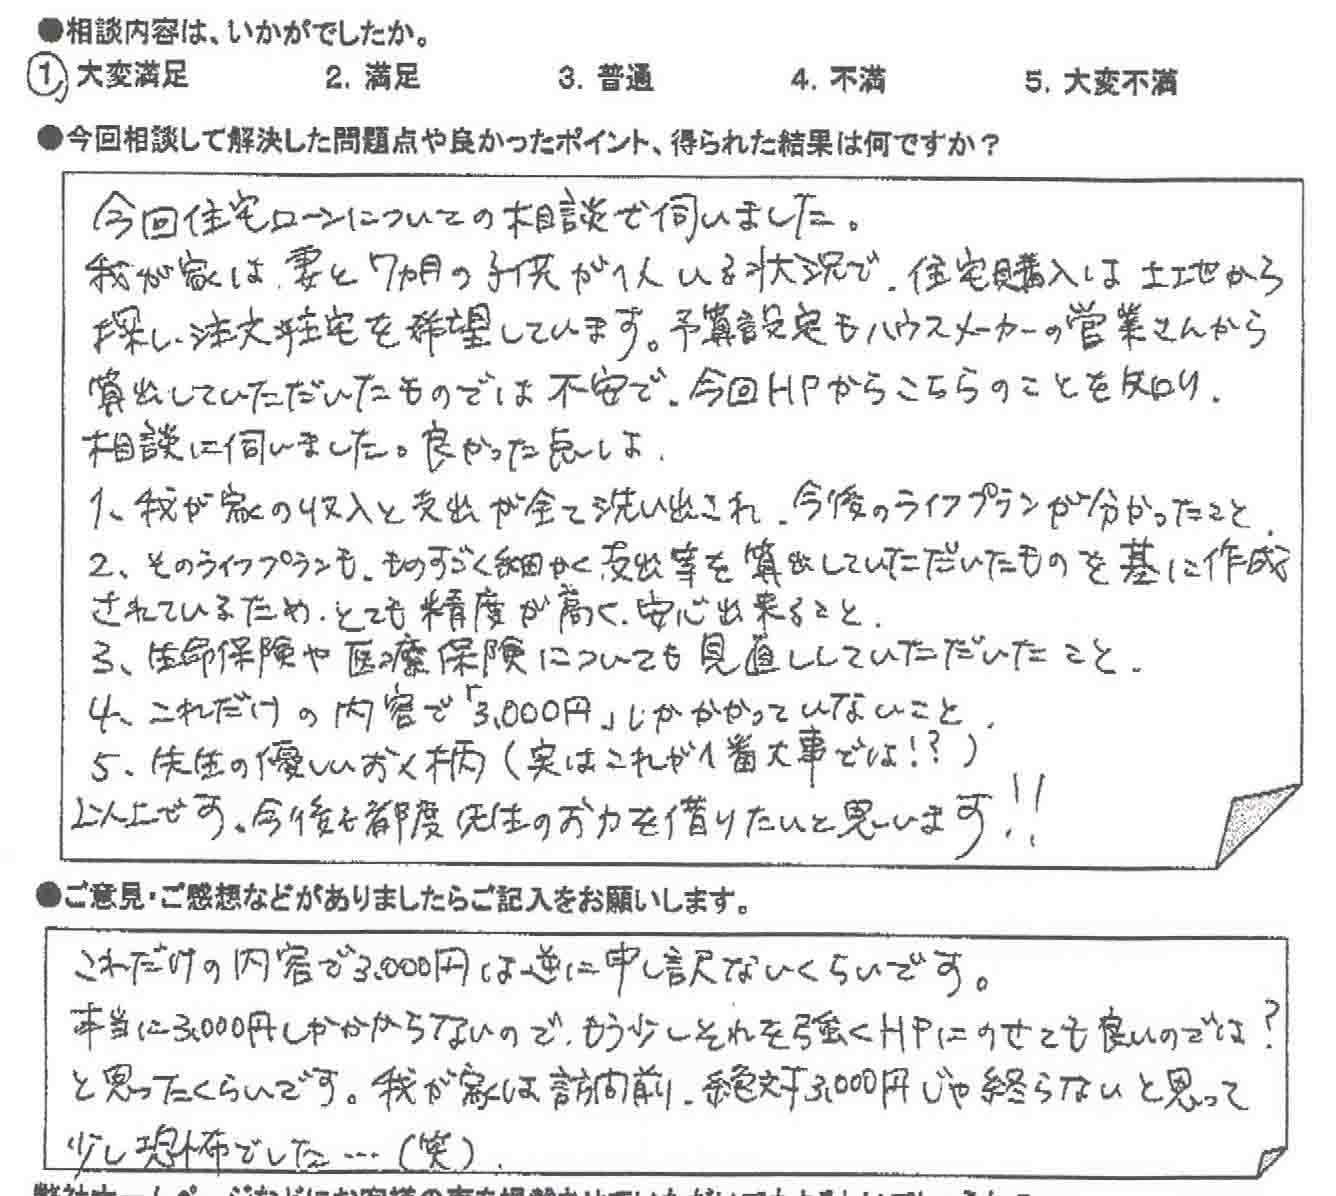 ●相談内容は、いかがでしたか。
1. 大変満足 2. 満足 3. 普通 4. 不満 5. 大変不満
●今回相談して解決した問題点や良かったポイント、得られた結果は何ですか？
今回住宅ローンについての相談で伺いました。
我が家は、妻と7ヵ月の子供が1人いる状況で、住宅購入は土地から
探し、注文住宅を希望しています。予算設定もハウスメーカーの営業さんから
算出していただいたものでは不安で、今回HPからこちらのことを知り、
相談に伺いました。良かった点は、
1、我が家の収入と支出が全て洗い出され、今後のライフプランが分かったこと、
2、そのライフプランも、ものすごく細かく支出等を算出していただいたものを基に作成
されているため、とても精度が高く、安心出来ること、
3、生命保険や医療保険についても見直ししていただいたこと、
4、これだけの内容で「3,000円」しかかかっていないこと、
5、先生の優しいお人柄（実はこれが1番大事では!?）
以上です。今後も都度先生のお力を借りたいと思います!!
●ご意見・ご感想などがありましたらご記入をお願いします。
これだけの内容で3,000円は逆に申し訳ないくらいです。
本当に3,000円しかかからないので、もう少しそれを強くHPにのせても良いのでは？
と思ったくらいです。我が家は訪問前、絶対3,000円じゃ終らないと思って
少し恐怖でした…（笑）、